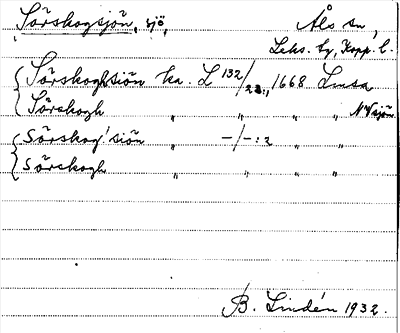 Sörskogsjön, sjö, Åls sn,
Leks. tg, Kopp. l.
Sörskoghsiön ka. L 132/22:, 1668 Lmsa
Sörskogh " " " " NV sjön
Sörskog'siön " -/-:2 " "
Sörskogh " " " "
B. Lindén 1932.